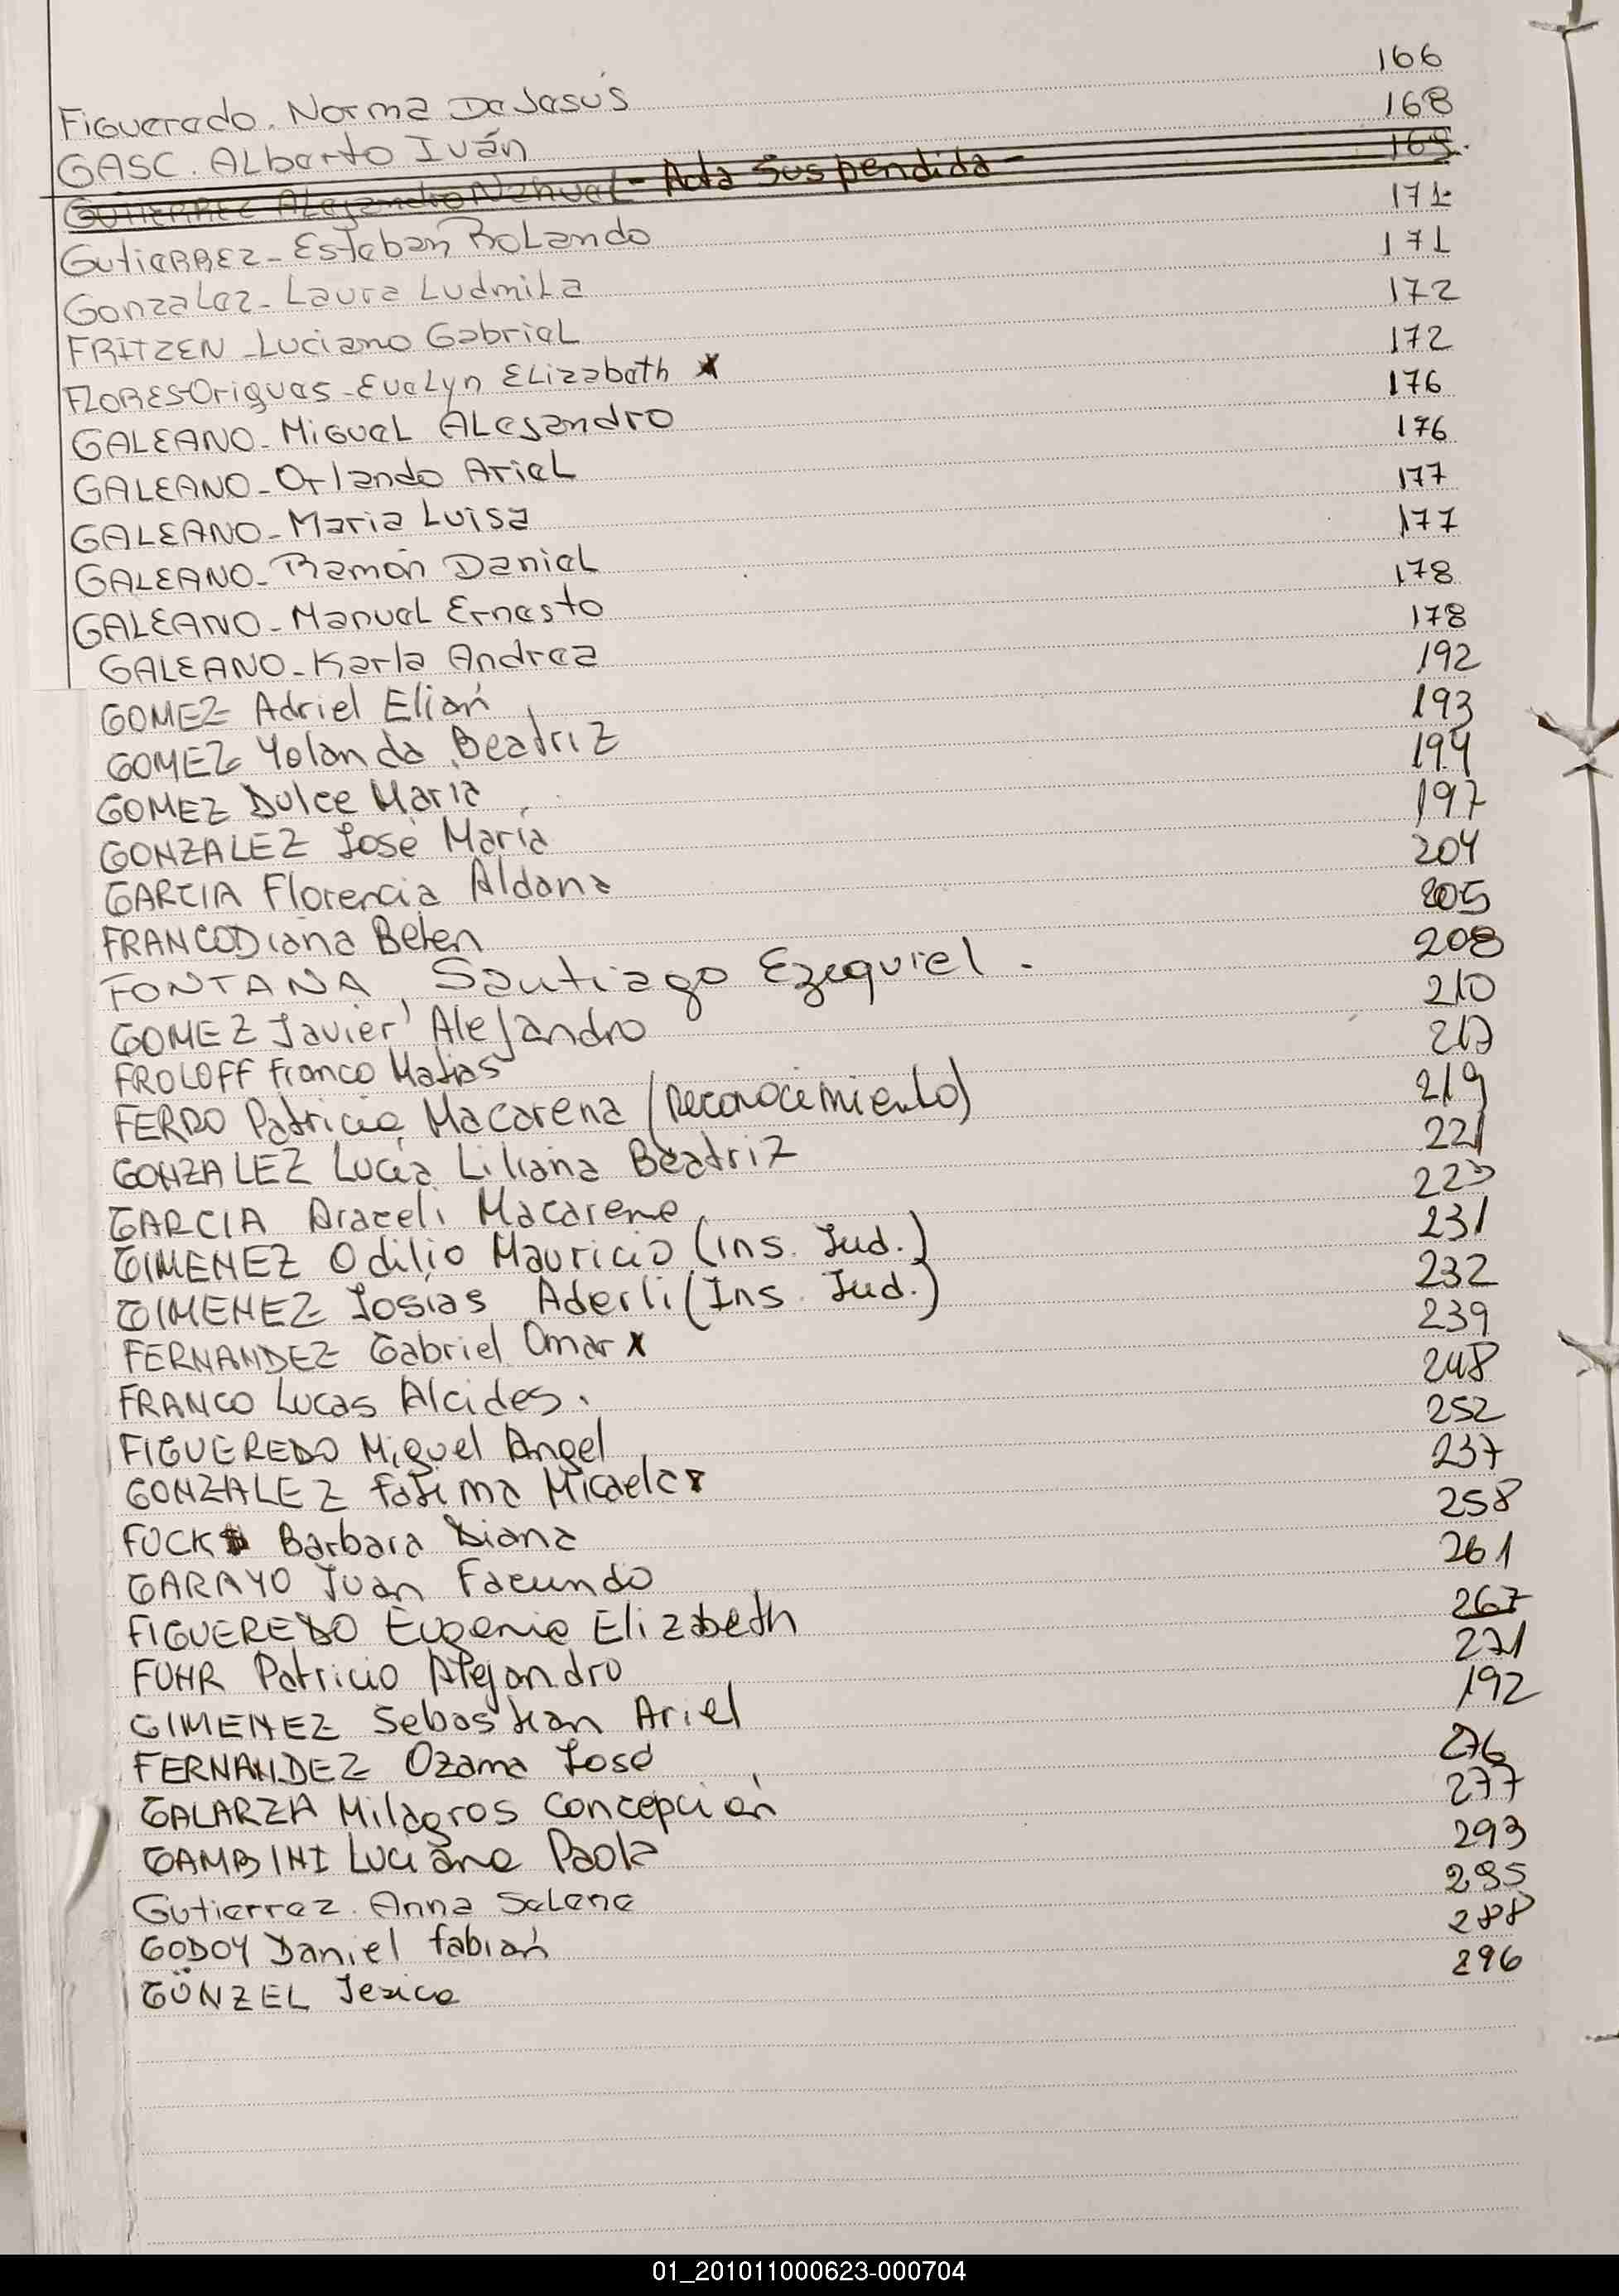 Figueredo. Norma De Jesús 166
GASC. Alberto Iván 168
GUTIERREZ Alejandro Nahuel - Acta Suspendida - 169
Gutierrez - Esteban Rolando 171
Gonzalez - Laura Ludmila 171
FRITZEN - Luciano Gabriel 172
FLORES Origues - Evelyn Elizabeth x 172
GALEANO - Miguel Alejandro 176
GALEANO - Orlando Ariel 176
GALEANO - Maria Luisa 177
GALEANO - Ramón Daniel 177
GALEANO - Manuel Ernesto 178
GALEANO - Karla Andrea 178
GOMEZ Adriel Elián 192
GOMEZ Yolanda Beatriz 193
GOMEZ Dulce María 194
GONZALEZ José María 197
GARCIA Florencia Aldana 204
FRANCO Diana Belen 205
FONTANA, Santiago Ezequiel. 208
GOMEZ Javier Alejandro 210
FROLOFF Franco Matias
FERRO Patricia Macarena (Reconocimiento) 219
GONZALEZ Lucía Liliana Beatriz 221
GARCIA Araceli Macarena 223
GIMENEZ Odilio Mauricio (ins. Jud.) 231
GIMENEZ Josias Aderli (Ins. Jud.) 232
FERNANDEZ Gabriel Omar x 239
FRANCO Lucas Alcides. 248
FIGUEREDO Miguel Angel 252
GONZALEZ Fatima Micaela 237
FUCKS Barbara Diana 258
GARAYO Juan Facundo 261
FIGUEREDO Eugenia Elizabeth 267
FUHR Patricio Alejandro 271
GIMENEZ Sebastian Ariel 192
FERNANDEZ Ozama José 276
GALARZA Milagros Concepción 277
GAMBINI Luciana Paola 293
Gutierrez. Anna Selene 295
GODOY Daniel fabián 288
GÜNZEL Jesica 296
01_201011000623-000704